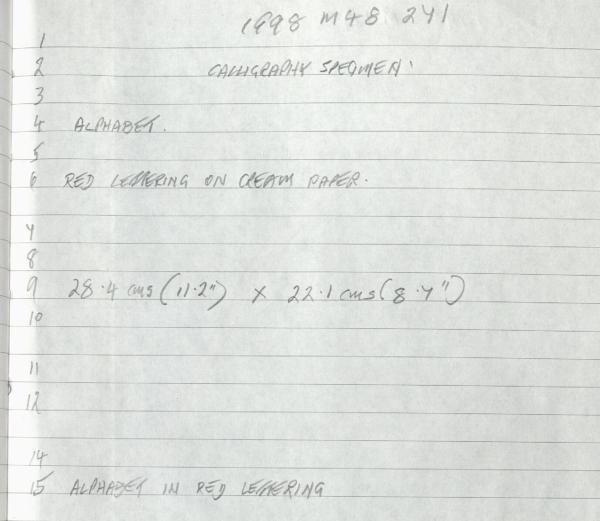 1998 M48 241
1
2 CALLIGRAPHY SPECIMEN
3
4 ALPHABET.
5
6 RED LETTERING ON CREAM PAPER.
7
8
9 28.4 cms (11.2") X 22.1 cms (8.7")
10
11
12
14
15 ALPHABET IN RED LETTERING